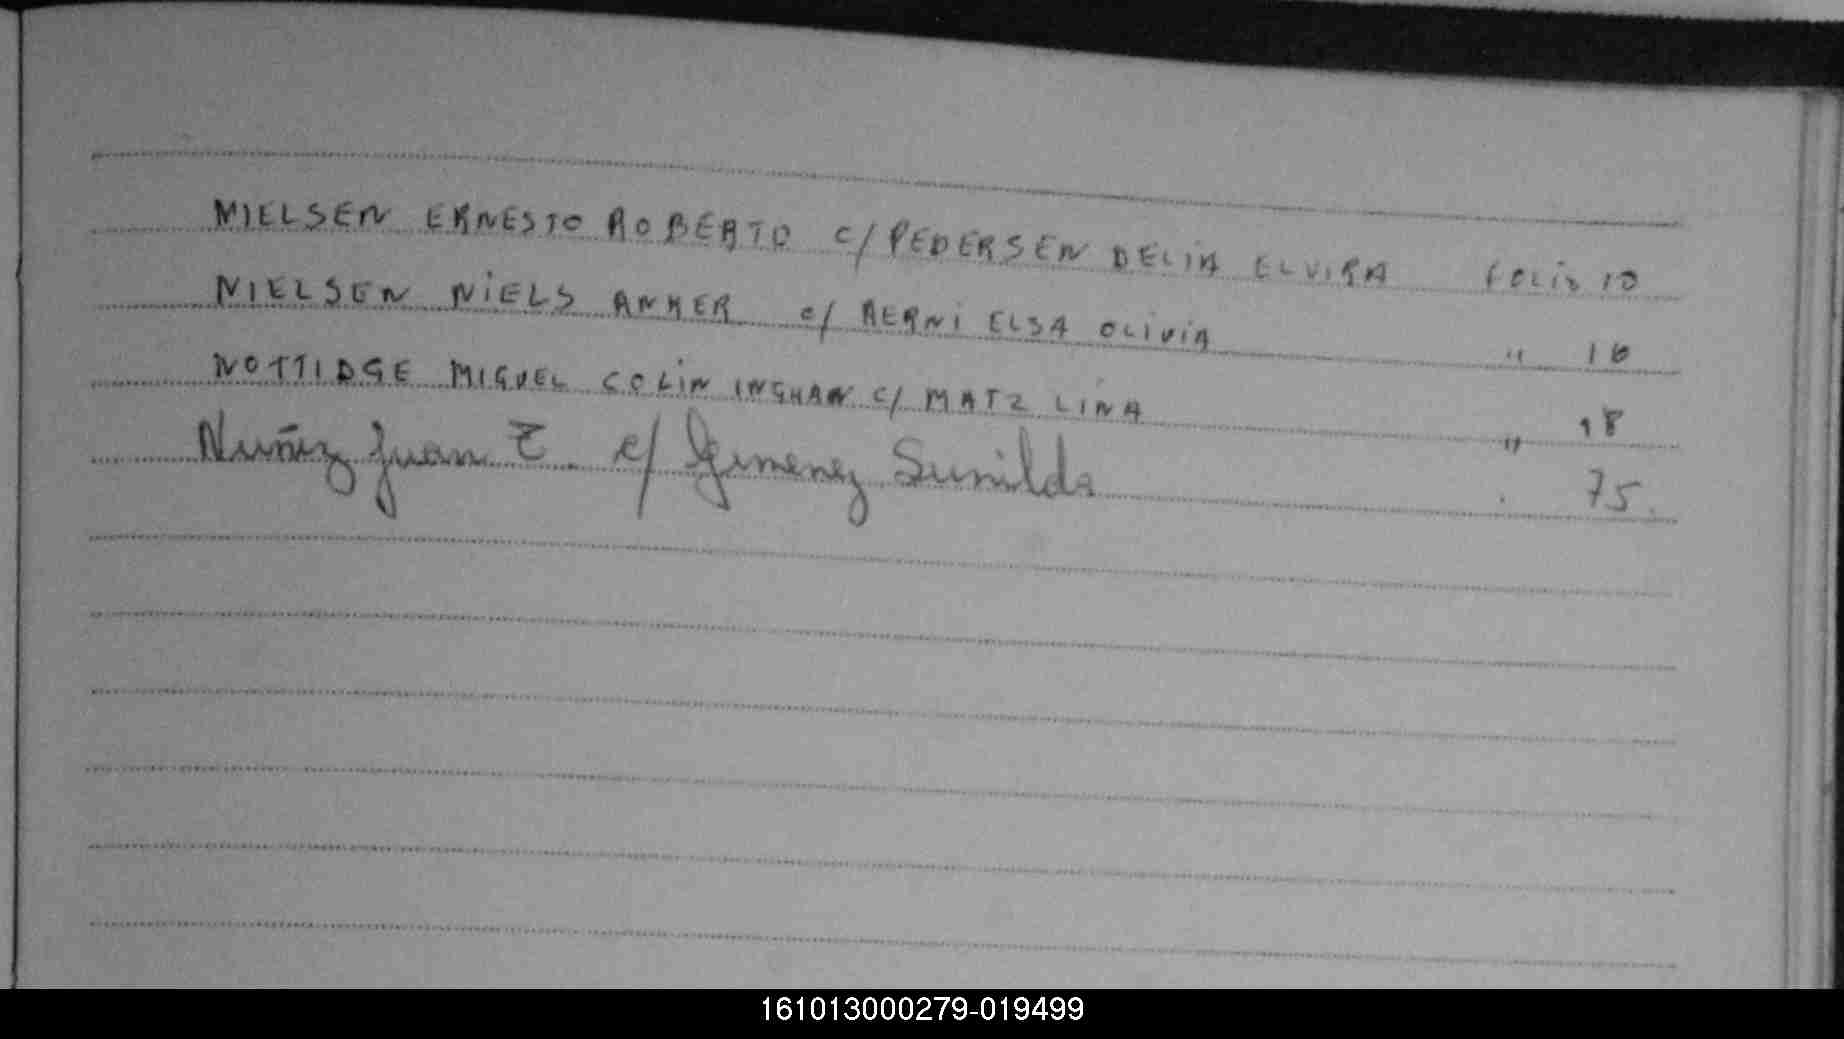 NIELSEN ERNESTO ROBERTO c/ PEDERSEN DELIA ELVIRA FOLIO 10
NIELSEN NIELS ANKER c/ AERNI ELSA OLIVIA " 16
NOTTIDGE MIGUEL COLIN INGHAN c/ MATZ LINA " 18
Nuñez Juan E. c/ Gimenez Sunilda 75.
161013000279-019499